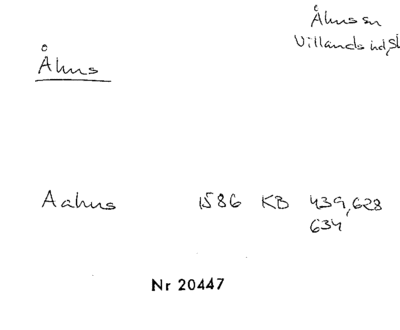 Åhus sn
Villands hd, Sk
Åhus
Aahus 1586 KB 439, 628
634
Nr 20447